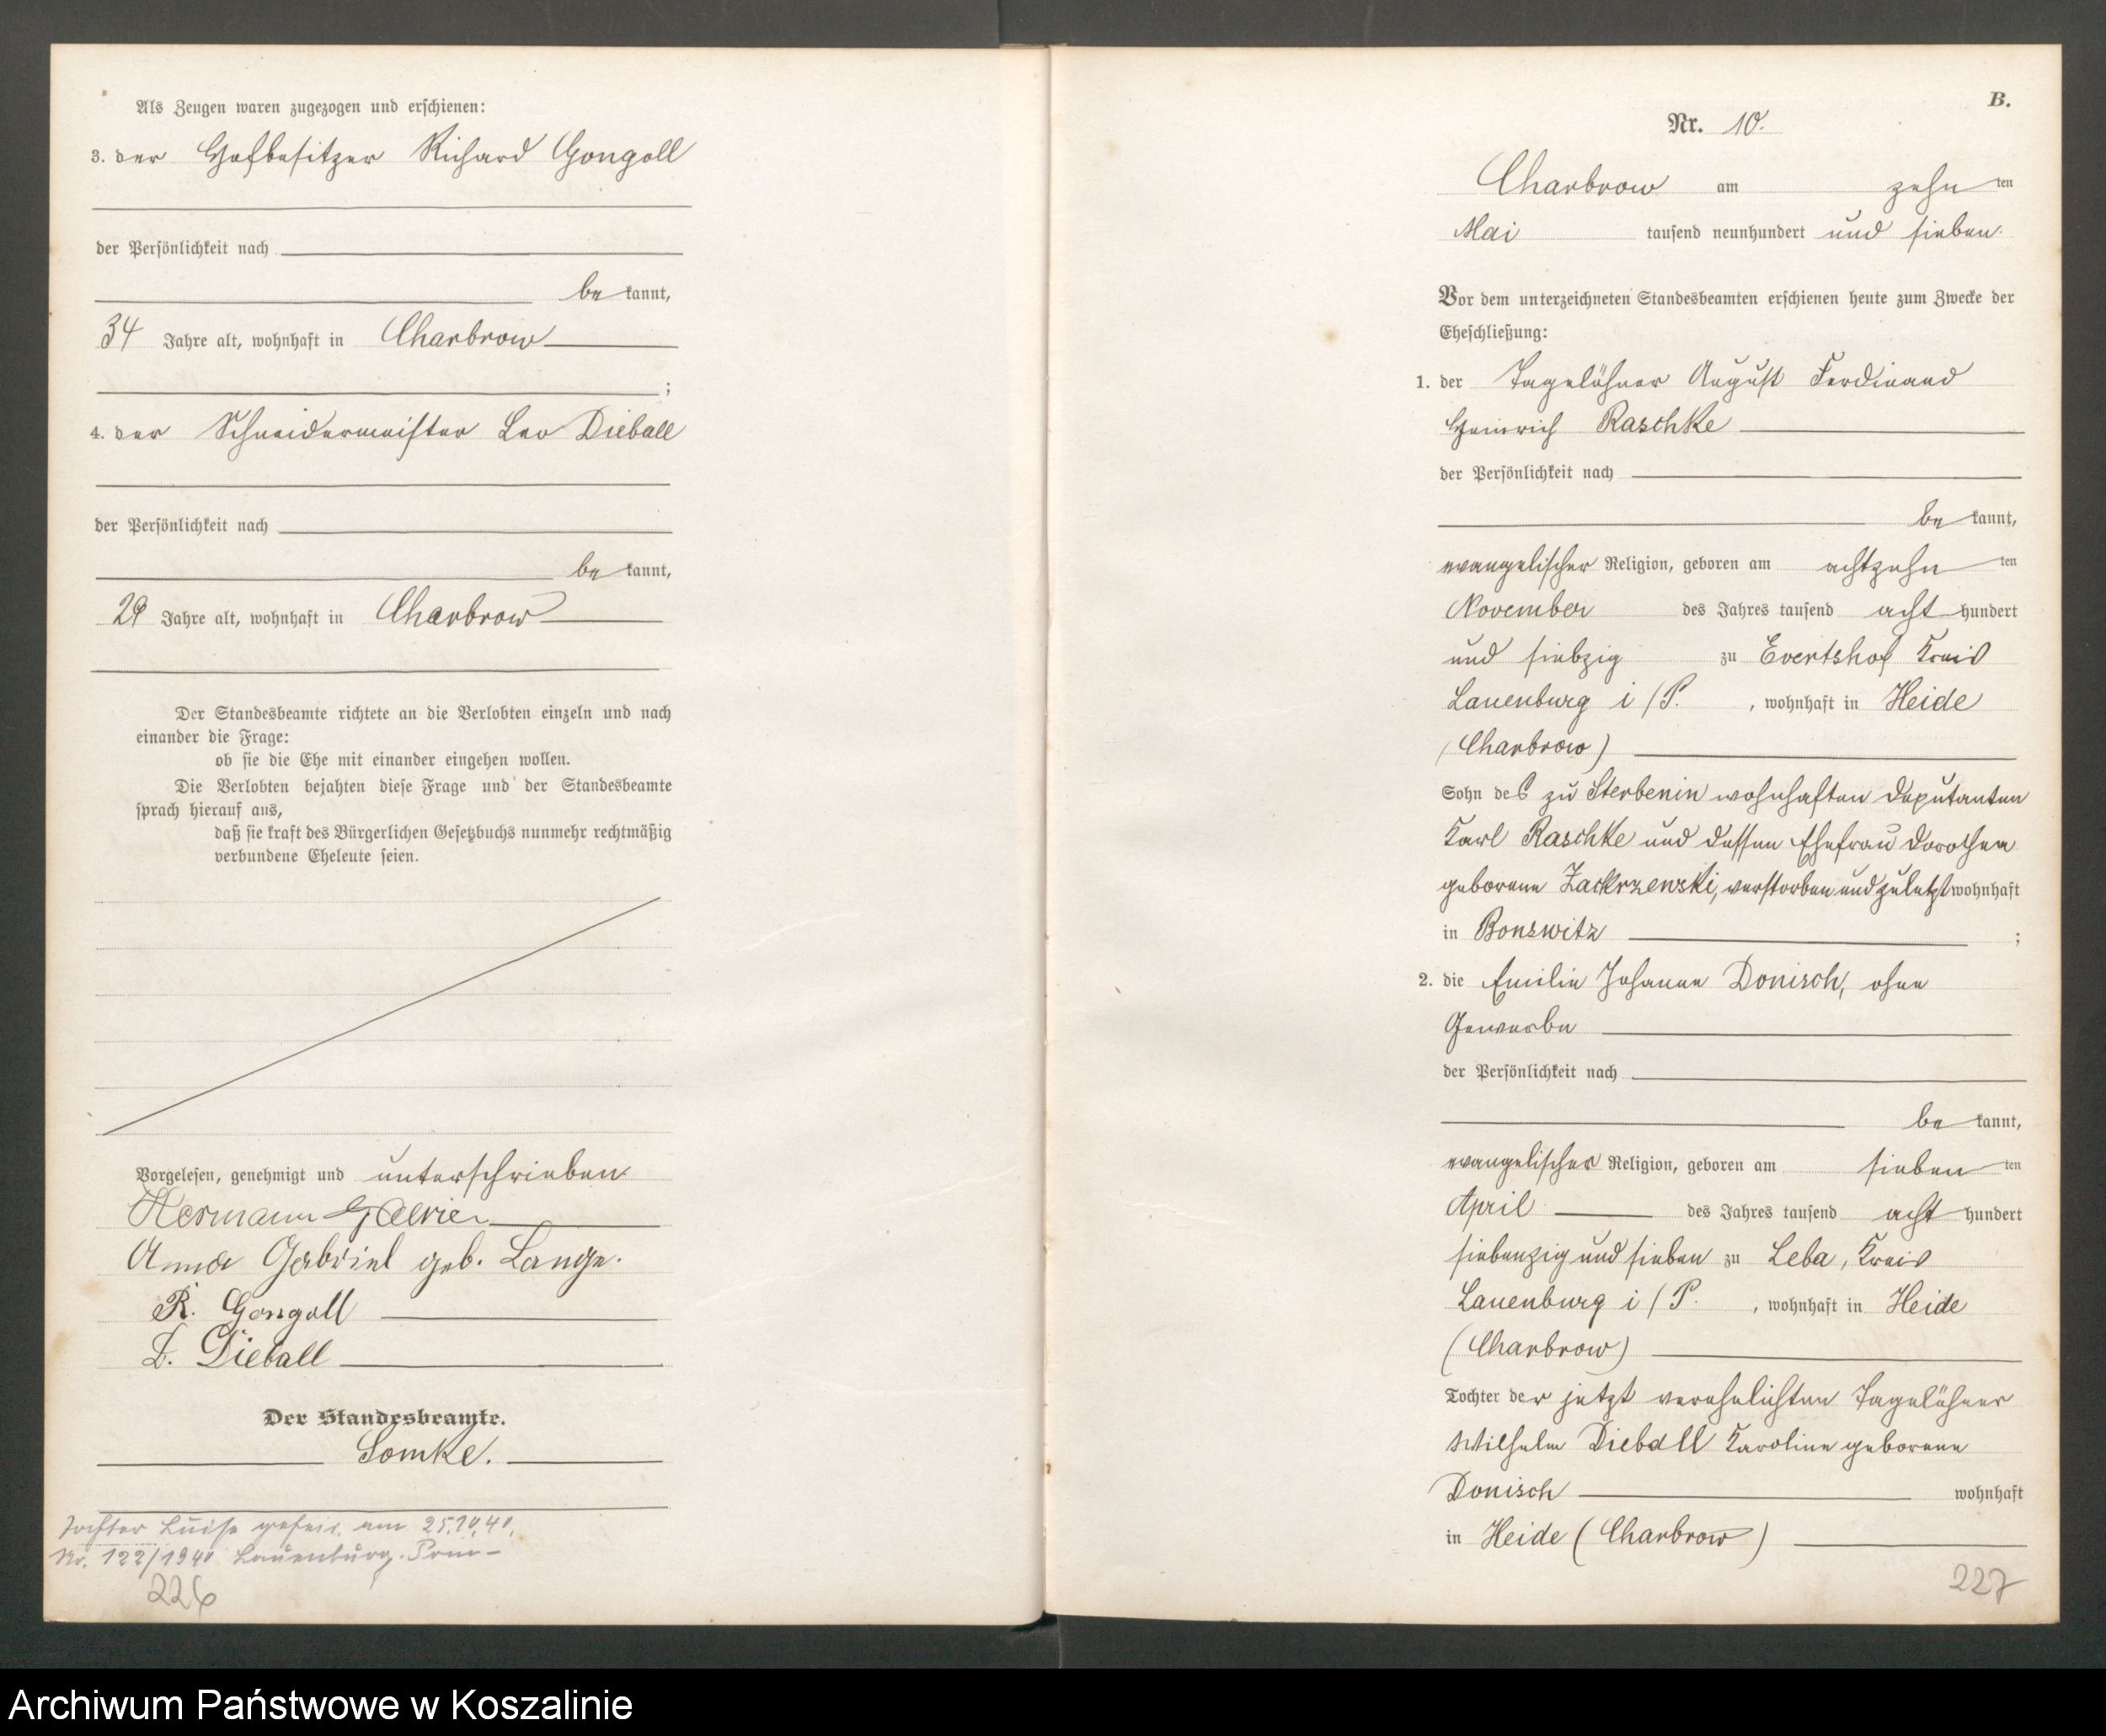 Als Zeugen waren zugezogen und erschienen:
3. der Hofbesitzer Richard Gongoll
der Persönlichkeit nach
be kannt,
34 Jahre alt, wohnhaft in Charbrow
;
4. der Schneidermeister Leo Dieball
der Persönlichkeit nach
be kannt,
29 Jahre alt, wohnhaft in Charbrow
Der Standesbeamte richtete an die Verlobten einzeln und nach
einander die Frage:
ob sie die Ehe mit einander eingehen wollen.
Die Verlobten bejahten diese Frage und der Standesbeamte
sprach hierauf aus,
daß sie kraft des Bürgerlichen Gesetzbuchs nunmehr rechtmäßig
verbundene Eheleute seien.
Vorgelesen, genehmigt und unterschrieben
Hermann
Anna Gabriel geb. Lange.
R. Gongoll
L. Dieball
Der Standesbeamte.
Somke.
Tochter Luise geheir. am 25.10.40.
Nr. 122/1940 Lauenburg. Pom-
226
B.
Nr. 10.
Charbrow am zehn ten
Mai tausend neunhundert und sieben.
Vor dem unterzeichneten Standesbeamten erschienen heute zum Zwecke der
Eheschließung:
1. der Tagelöhner August Ferdinand
Heinrich Raschke
der Persönlichkeit nach
be kannt,
evangelischer Religion, geboren am achtzehn ten
November des Jahres tausend acht hundert
und siebzig zu Evertshof Kreis
Lauenburg i/P. , wohnhaft in Heide
(Charbrow)
Sohn des zu Sterbenin wohnhaften Deputanten
Karl Raschke und dessen Ehefrau Dorothea
geborene Zackrzewski, verstorben und zuletzt wohnhaft
in Bonswitz ;
2. die Emilie Johanne Donisch, ohne
Gewerbe
der Persönlichkeit nach
be kannt,
evangelischer Religion, geboren am sieben ten
April des Jahres tausend acht hundert
siebenzig und sieben zu Leba, Kreis
Lauenburg i/P. , wohnhaft in Heide
(Charbrow)
Tochter der jetzt verehelichten Tagelöhner
Wilhelm Dieball Karoline geborene
Donisch wohnhaft
in Heide (Charbrow)
227
Archiwum Państwowe w Koszalinie